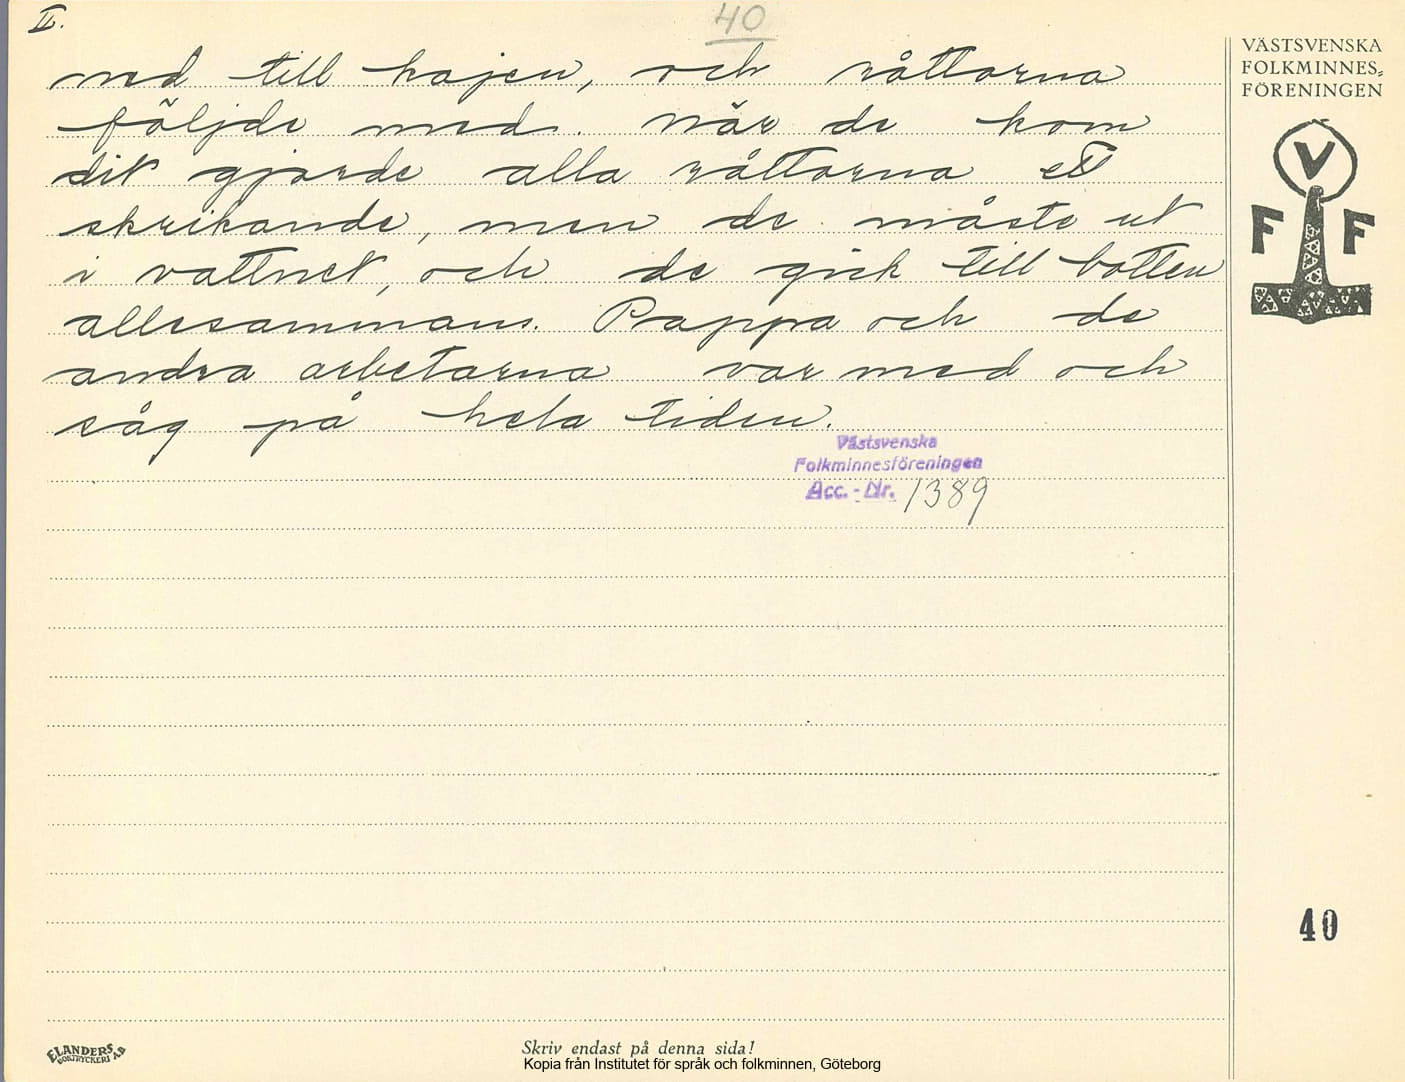 II.
40
ned till kajen, och råttorna
följde med. När de kom
dit gjorde alla råttorna ett
skrikande, men de måste ut
i vattnet, och de gick till botten
allesammans. Pappa och de
andra arbetarna var med och
såg på hela tiden.
Västsvenska
Folkminnesföreningen
Acc. - Nr. 1389
VÄSTSVENSKA
FOLKMINNES-
FÖRENINGEN
V
F F
40
ELANDERS
BOKTRYCKERI A.B
Skriv endast på denna sida!
Kopia från Institutet för språk och folkminnen, Göteborg